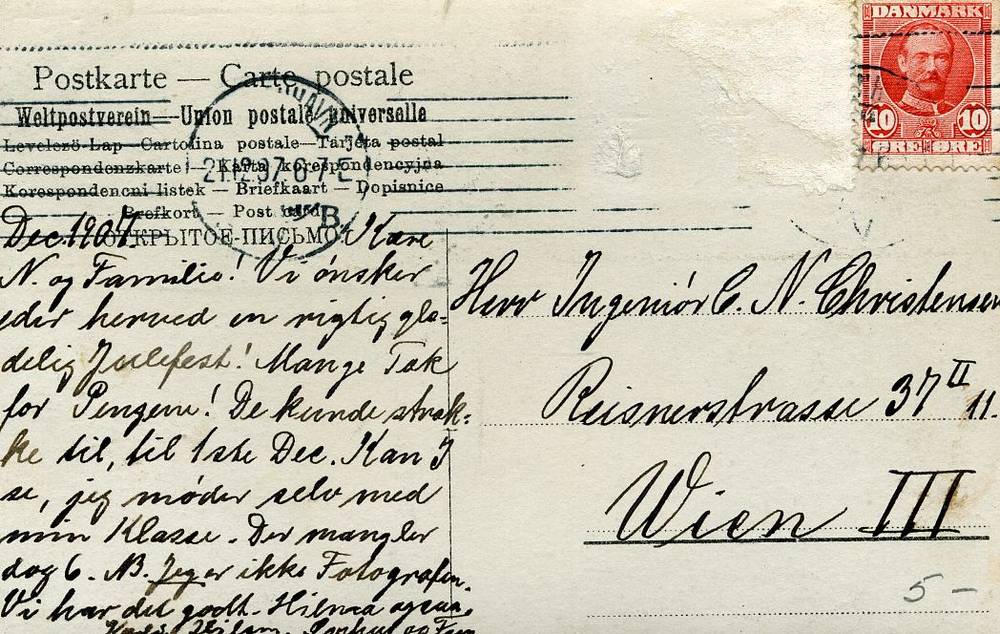 DANMARK
10 10
ØRE ØRE
Postkarte — Carte postale
Weltpostverein — Union postale universelle
Levelező-Lap — Cartolina postale — Tarjeta postal
Correspondenzkarte — Karta korespondencyjna
Korespondencni listek — Briefkaart — Dopisnice
Brefkort — Post card
ОТКРЫТОЕ ПИСЬМО
21.12.07. 6-7 E
B
Dec. 1907. Kære
N. og Familie! Vi ønsker
eder herved en rigtig glæ=
delig Julefest! Mange Tak
for Pengene! De kunde stræk=
ke til, til 1ste Dec. Kan I
se, jeg møder selv med
min Klasse. Der mangler
dog 6. NB. Jeg er ikke Fotografen.
Vi har det godt. Hilma ogsaa.
Herr Ingeniör C. N. Christensen
Reisnerstrasse 37 II 11.
Wien III
5 –